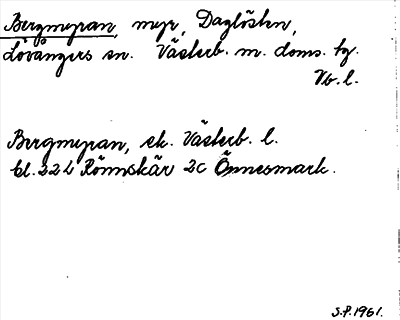 Bergmyran, myr, Daglösten,
Lövångers sn. Västerb. m. doms. tg.
Vb. l.
Bergmyran, ek. Västerb. l.
bl. 22 L Rönnskär 2c Önnesmark.
S.P. 1961.